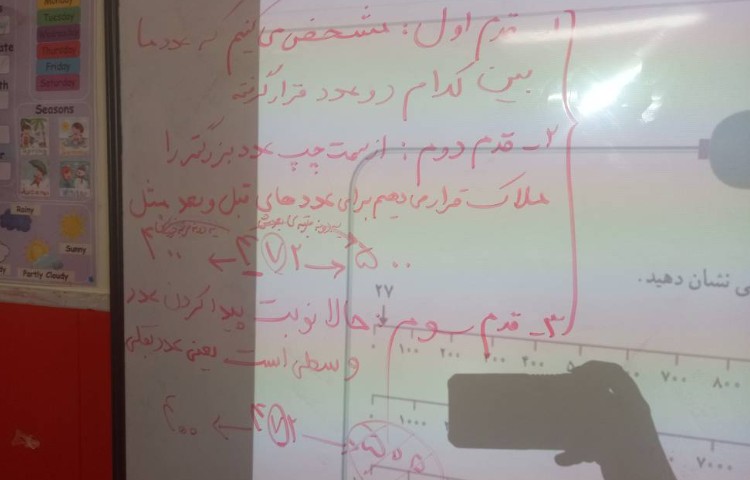 ۱_ قدم اول : مشخص می کنیم که عدد ما
بین کدام دو عدد قرار گرفته
۲_ قدم دوم : از سمت چپ عدد بزرگتر را
ملاک قرار می دهیم برای عدد های قبل و بعد مثل
۴۰۰ ← ۴۷۲ → ۵۰۰
۳_ قدم سوم حالا نوبت پیدا کردن عدد
وسطی است یعنی عدد
۴۰۰ ← ۴۷۲ — ۵۰۰
ی نشان دهید.
۲۷
۰ ۱۰۰ ۲۰۰ ۳۰۰ ۴۰۰ ۷۰۰ ۸۰۰
۰ ۱۰۰۰ ۷۰۰۰
Monday
Tuesday
Wednesday
Thursday
Friday
Saturday
Seasons
Rainy
Sunny
Partly Cloudy